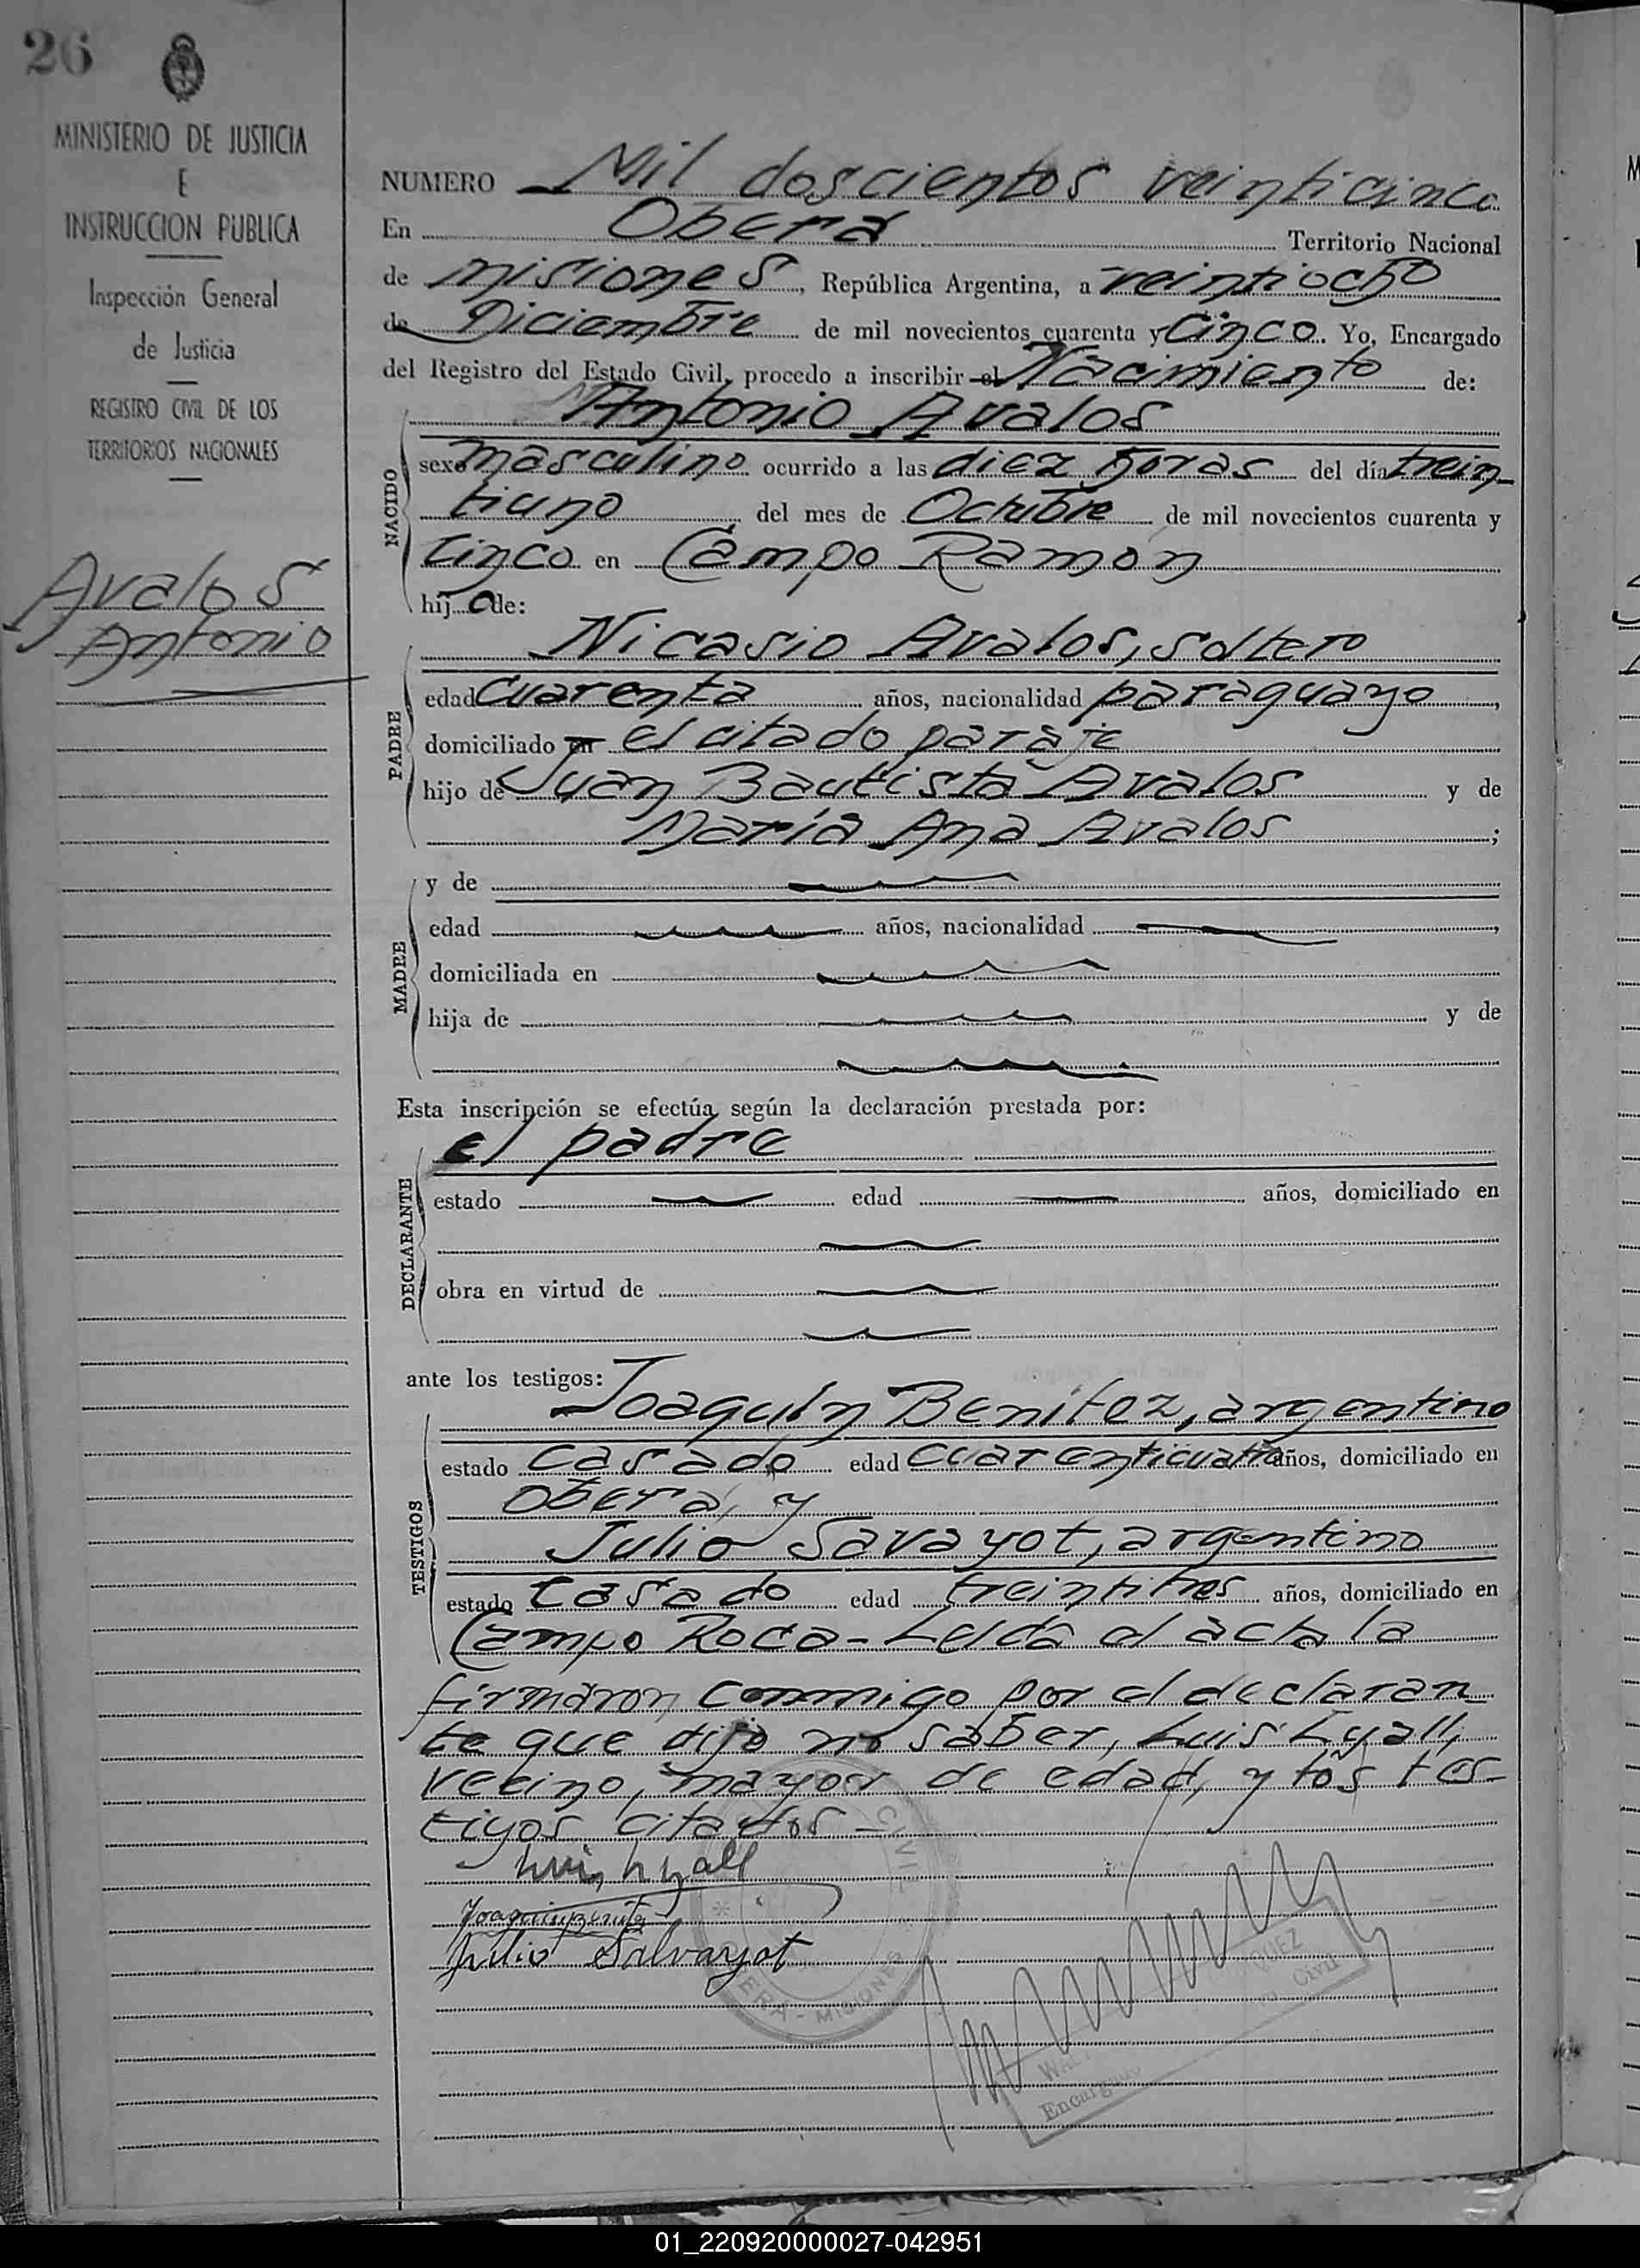 26
MINISTERIO DE JUSTICIA
E
INSTRUCCION PUBLICA
Inspección General
de Justicia
REGISTRO CIVIL DE LOS
TERRITORIOS NACIONALES
Avalos
Antonio
NUMERO Mil doscientos veinticinco
En Obera Territorio Nacional
de misiones, República Argentina, a veintiocho
de Diciembre de mil novecientos cuarenta y Cinco. Yo, Encargado
del Registro del Estado Civil, procedo a inscribir el Nacimiento de:
Antonio Avalos
NACIDO
sexo masculino ocurrido a las diez horas del día trein-
tiuno del mes de Octubre de mil novecientos cuarenta y
Cinco en Campo Ramón
hijo de:
Nicasio Avalos, soltero
PADRE
edad cuarenta años, nacionalidad paraguayo,
domiciliado en el citado paraje
hijo de Juan Bautista Avalos y de
María Ana Avalos;
MADRE
y de
edad años, nacionalidad ,
domiciliada en
hija de y de
Esta inscripción se efectúa según la declaración prestada por:
el padre
DECLARANTE
estado edad años, domiciliado en
obra en virtud de
ante los testigos:
Joaquín Benitez, argentino
TESTIGOS
estado casado edad cuarenticuatro años, domiciliado en
Obera, y
Julio Savayot, argentino
estado casado edad treintitres años, domiciliado en
Campo Roca - Leída el acta la
firmaron conmigo por el declaran-
te que dijo no saber, Luis Lyall,
vecino, mayor de edad, y los tes-
tigos citados -
Luis Lyall
Joaquin Benitez
Julio Salvayot
CIVIL
OBERA - MISIONES
Encargado
Civil
01_220920000027-042951